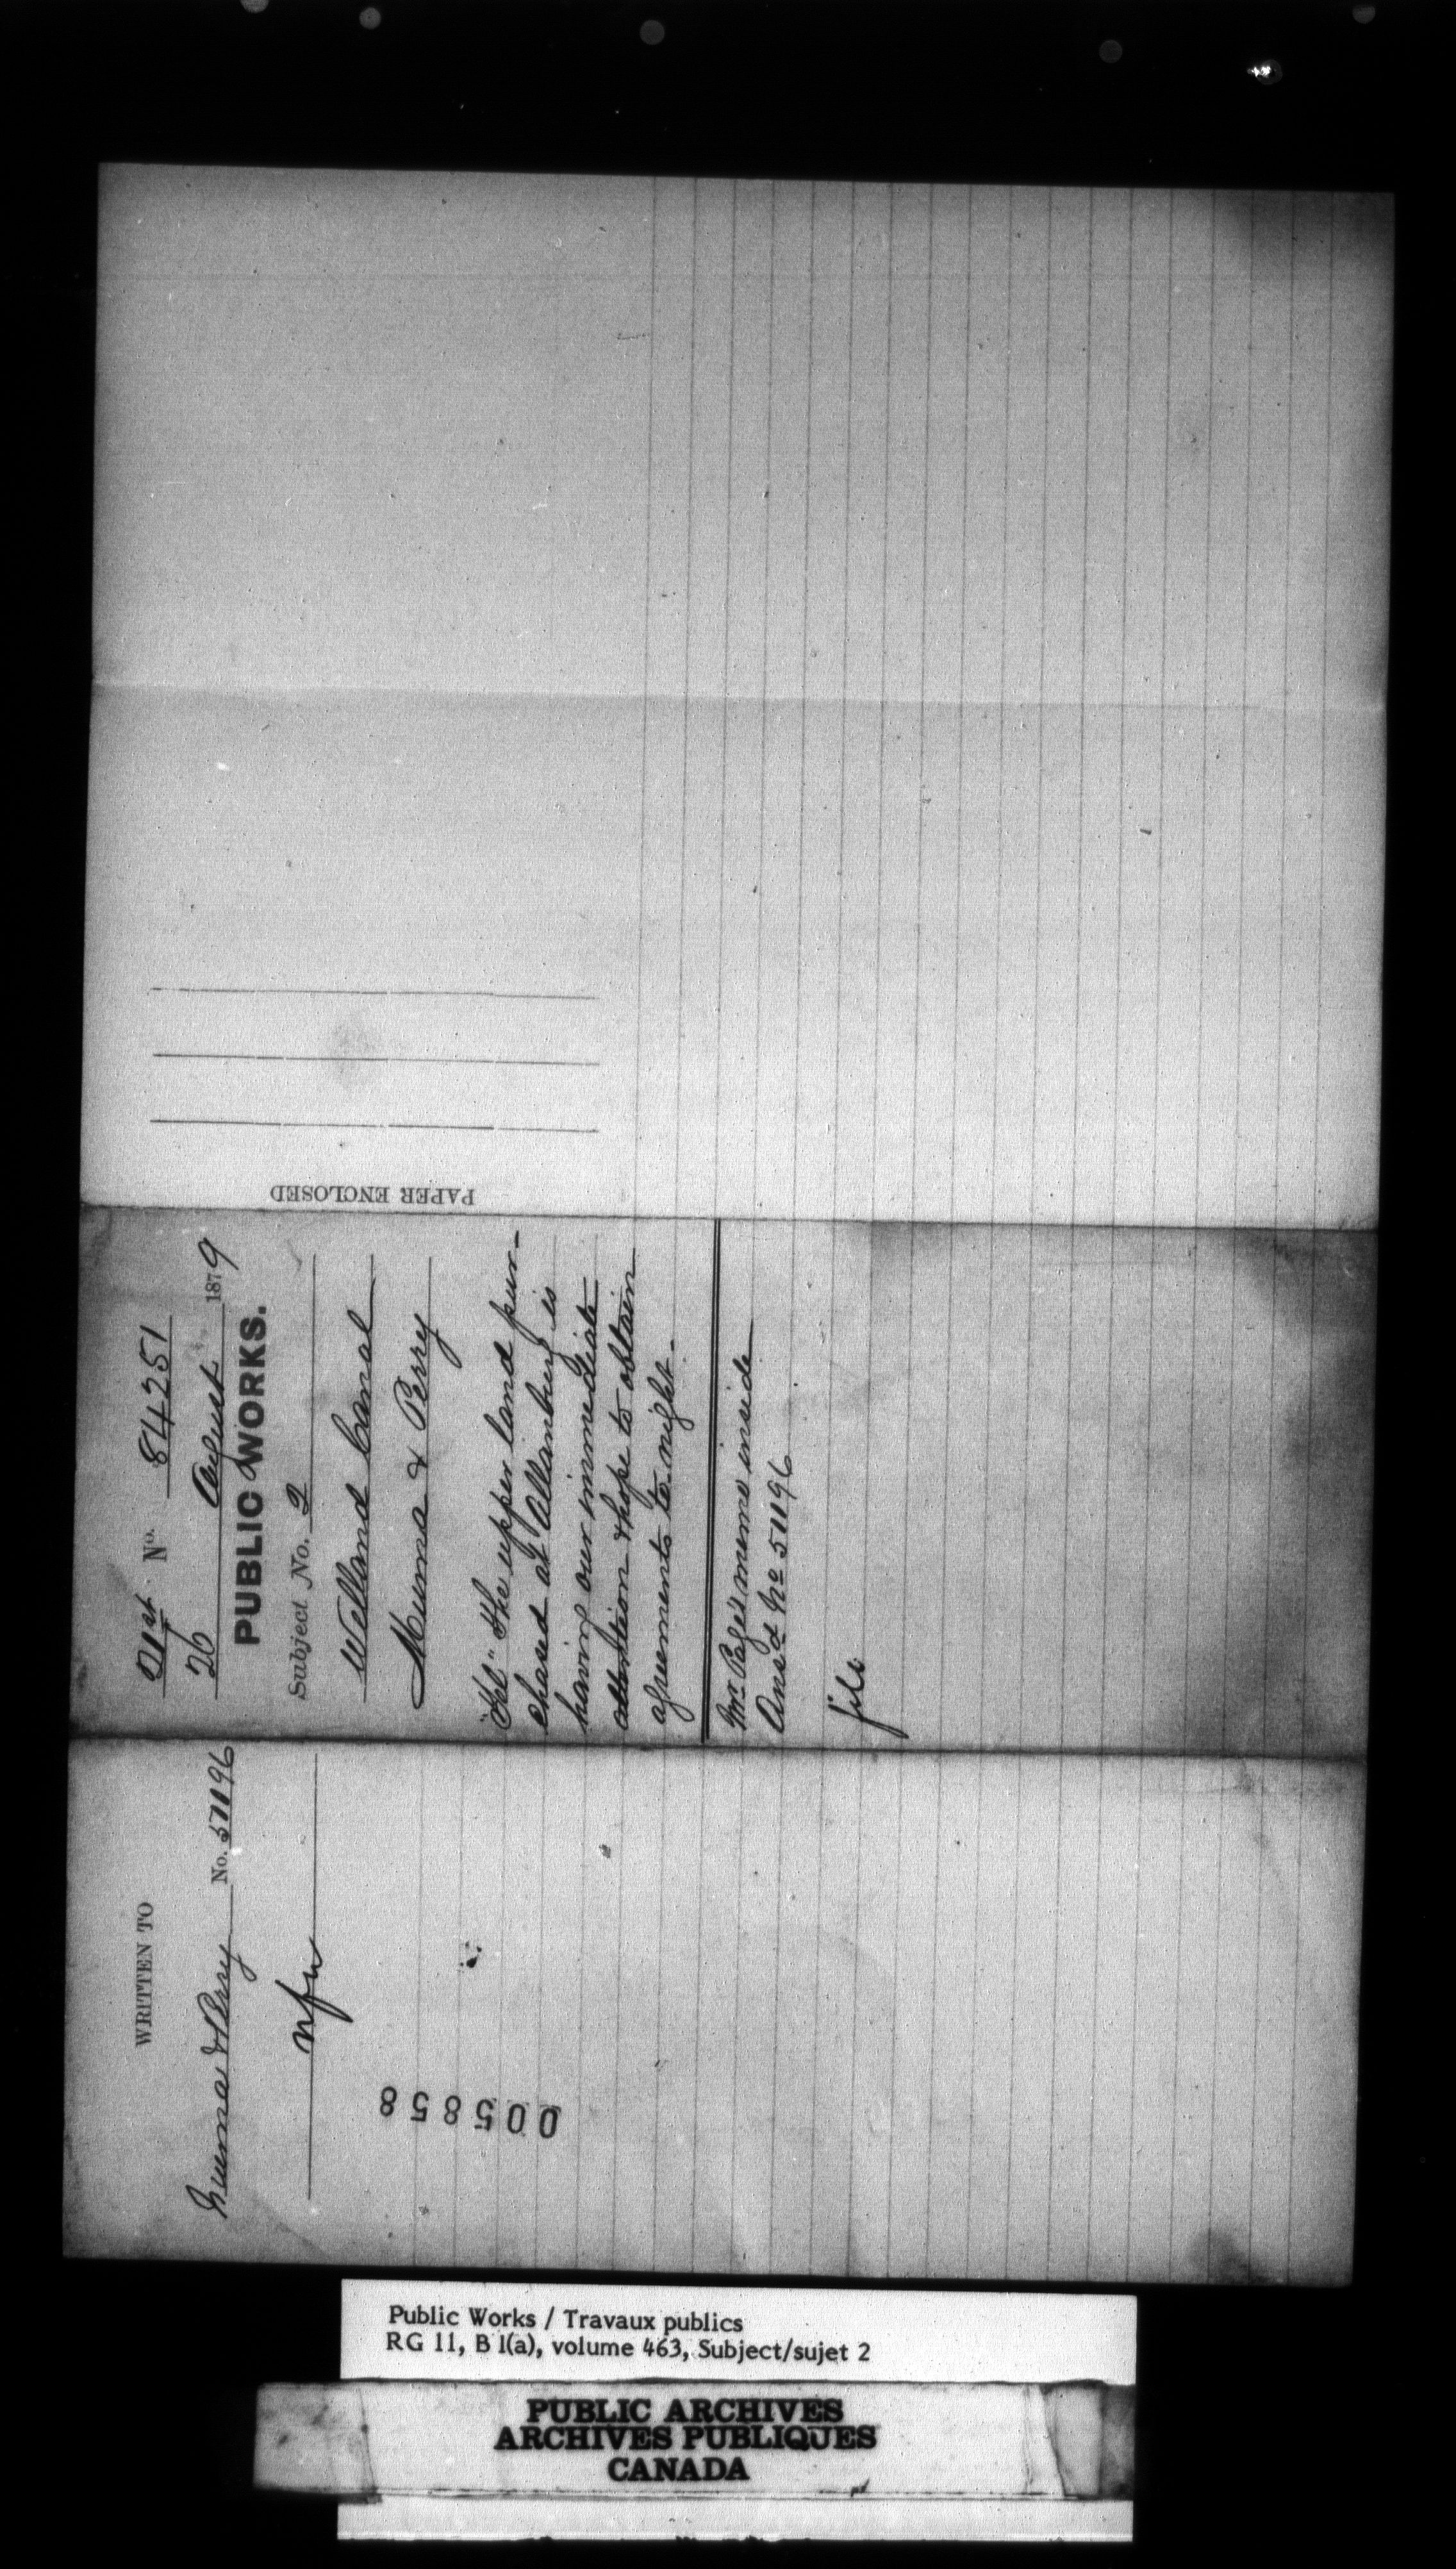 PAPER ENCLOSED
21st No. 84251
26 August 1879
PUBLIC WORKS.
Subject No. 2
Welland Canal
Muma & Perry
"Tel" The upper land pur-
chased at Allanburg is
having our immediate
attention & hope to obtain
agreements to night.
Mr. Page's memo inside
Ansd No 51196
file
WRITTEN TO
Muma & Perry No. 51196
005858
Public Works / Travaux publics
RG 11, B 1(a), volume 463, Subject/sujet 2
PUBLIC ARCHIVES
ARCHIVES PUBLIQUES
CANADA